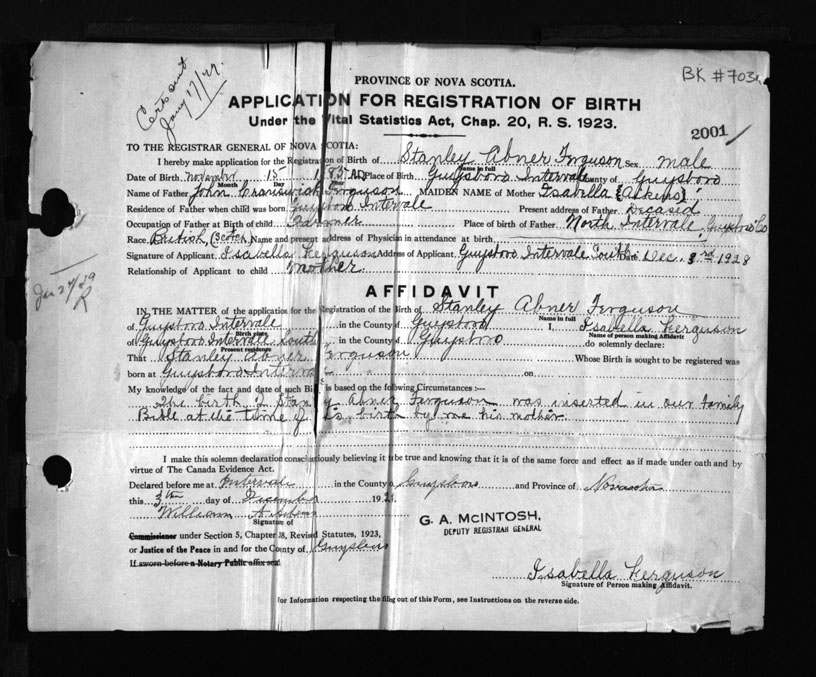 BK #703
Cert sent
Jany 17/29.
PROVINCE OF NOVA SCOTIA.
APPLICATION FOR REGISTRATION OF BIRTH
Under the Vital Statistics Act, Chap. 20, R. S. 1923.
2001
TO THE REGISTRAR GENERAL OF NOVA SCOTIA:
I hereby make application for the Registration of Birth of Stanley Abner Ferguson Sex male
Name in full
Date of Birth November 15 Place of Birth Guysboro Intervale County of Guysboro
Month Day
Name of Father John Ferguson MAIDEN NAME of Mother Isabella (Aikins)
Residence of Father when child was born Guysboro Intervale Present address of Father Deceased
Occupation of Father at Birth of child Farmer Place of birth of Father North Intervale, Guysboro Co
Race British, (Scotch) Name and present address of Physician in attendance at birth
Signature of Applicant Isabella Ferguson Address of Applicant Guysboro Intervale South Dec. 3rd 1928
Relationship of Applicant to child mother
Jan 24/29
AFFIDAVIT
IN THE MATTER of the application for the Registration of the Birth of Stanley Abner Ferguson
Name in full
of Guysboro Intervale in the County of Guysboro I, Isabella Ferguson
Birth place Name of person making Affidavit
of Guysboro Intervale South in the County of Guysboro do solemnly declare:
Present residence
That Stanley Abner Ferguson Whose Birth is sought to be registered was
born at Guysboro Intervale on
My knowledge of the fact and date of such Birth is based on the following Circumstances :—
The birth of Stanley Abner Ferguson was inserted in our family
Bible at the time of his birth by me his mother.
I make this solemn declaration conscientiously believing it to be true and knowing that it is of the same force and effect as if made under oath and by
virtue of The Canada Evidence Act.
Declared before me at Intervale in the County of Guysboro and Province of Nova Scotia
this 3th day of December 192
William
Signature of
G. A. McINTOSH,
DEPUTY REGISTRAR GENERAL
Commissioner under Section 5, Chapter 38, Revised Statutes, 1923,
or Justice of the Peace in and for the County of Guysboro
If sworn before a Notary Public affix seal
Isabella Ferguson
Signature of Person making Affidavit.
For Information respecting the filing out of this Form, see Instructions on the reverse side.